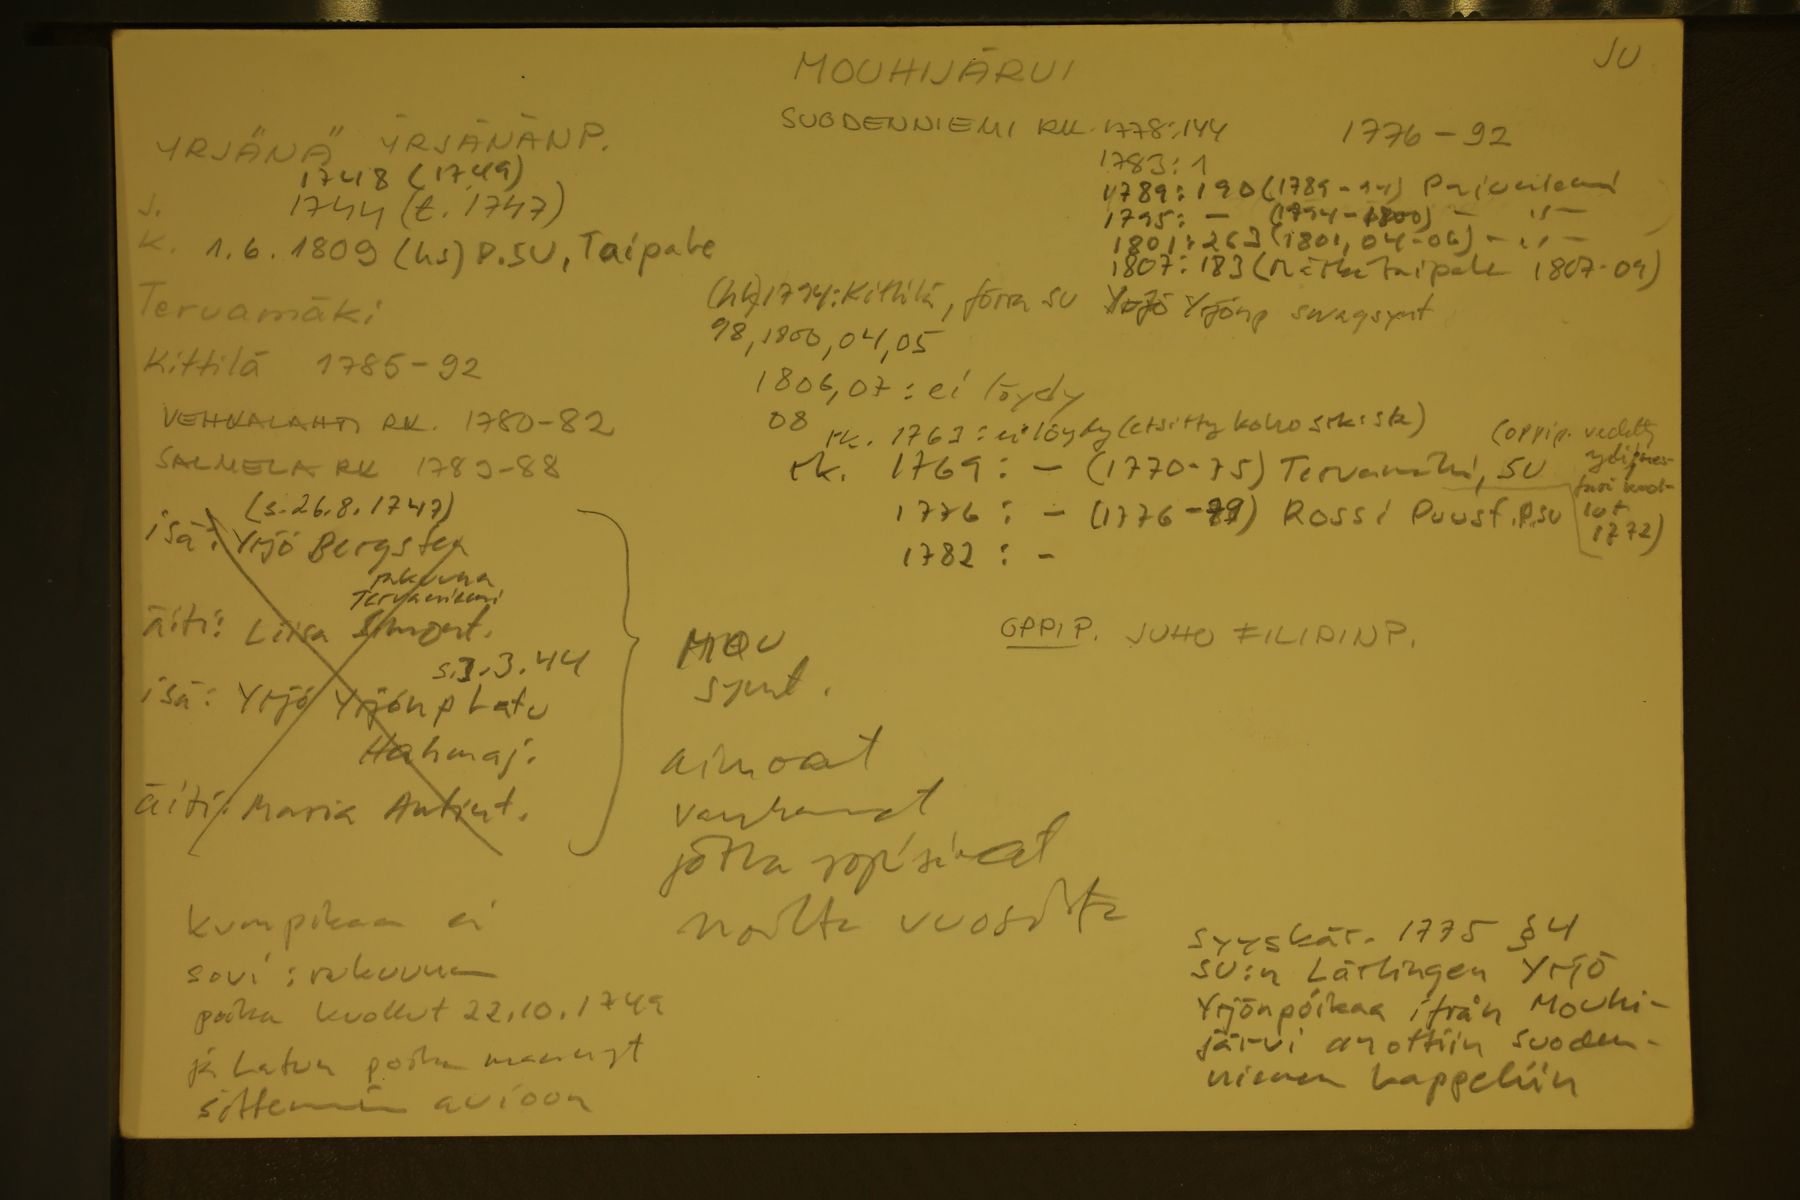 JU
MOUHIJÄRVI
SUODENNIEMI RK. 1778:144
1776-92
1783:1
1789:190 (1789-94)
1795: - (1794-1800) - " -
1801:263 (1801, 04-06) - " -
1807:183 ( Taipale 1807-09)
YRJÄNÄ YRJÄNÄNP.
1748 (1749)
s. 1744 (t. 1747)
k. 1.6.1809 (hs) P.SU, Taipale
Tervamäki
Kittilä 1785-92
VEHKALAHTI RK. 1780-82
SALMELA RK 1783-88
(hk) 1794: Kittilä, förra SU Yrjö Yrjönp
98, 1800, 04, 05
1806, 07: ei löydy
08
rk. 1763: ei löydy (etsitty koko srk:sta)
rk. 1769: - (1770-75) Tervamäki, SU
1776: - (1776-79) Rossi Puust. P.SU
1782: -
(oppip.
1772)
(s. 26.8.1747)
isä: Yrjö Bergsten
rakuuna
Tervaniemi
äiti: Liisa Simont.
s. 3.3.44
isä: Yrjö Yrjönp Latu
Hahmaj.
äiti: Maria Antint.
MOU
synt.
ainoat
vanhemmat
jotka sopisivat
noilta vuosilta
OPPIP. JUHO FILIPINP.
kumpikaan ei
sovi: rakuunan
poika kuollut 22.10.1749
ja Latun poika mennyt
sittemmin avioon
syyskär. 1775 §4
SU:n Lärlingen Yrjö
Yrjönpoikaa ifrån Mouhi-
järvi anottiin Suoden-
niemen kappeliin